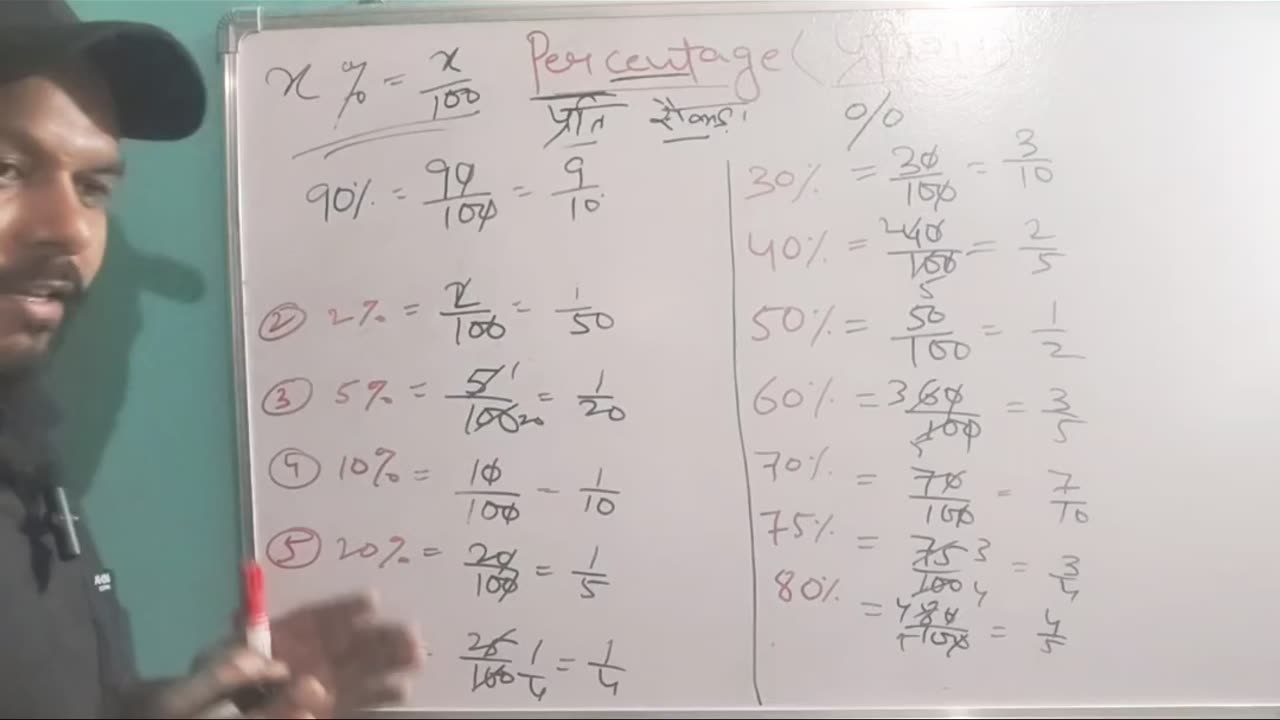 x % = x/100
Percentage (
प्रति सैकड़ा
%
90% = 90/100 = 9/10
② 2% = 2/100 = 1/50
③ 5% = 5/100 1 20 = 1/20
④ 10% = 10/100 = 1/10
⑤ 20% = 20/100 = 1/5
25/100 1/4 = 1/4
30% = 30/100 = 3/10
40% = 2 40/100 5 = 2/5
50% = 50/100 = 1/2
60% = 3 60/100 5 = 3/5
70% = 70/100 = 7/10
75% = 75/100 3 4 = 3/4
80% = 4 80/100 5 = 4/5